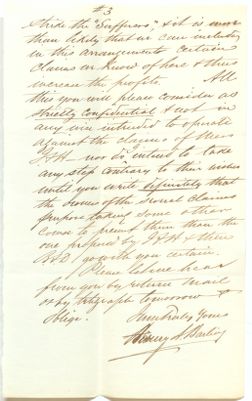 #3
"Sufferers" & it is more
than likely that we can include
in this arrangement certain
claims we know of here & thus
increase the profits. All
this you will please consider as
strictly confidential & not in
any wise intended to operate
against the claims of
J.H.H nor do intend to take
any step contrary to their wishes
until you write definitely that
the owners of the several claims
propose taking some other
course to present them than the
one proposed by J.H.H &
go with you certain.
Please let me hear
from you by return mail
or by telegraph tomorrow &
oblige. Yours Truly Yours
Henry A. Darling